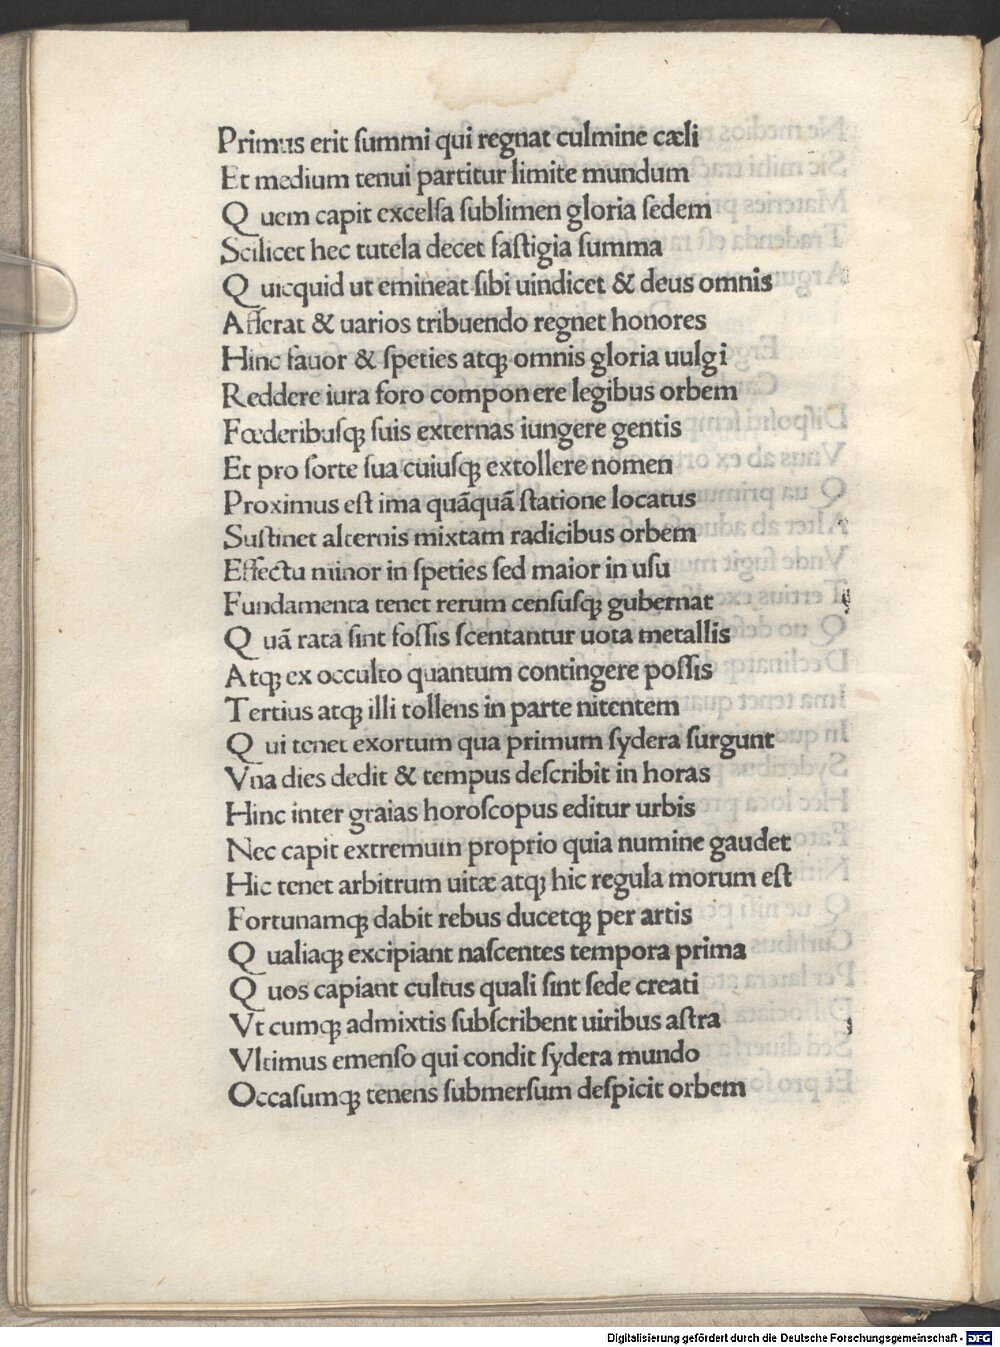 Primus erit ſummi qui regnat culmine cæli
Et medium tenui partitur limite mundum
Q uem capit excelſa ſublimen gloria ſedem
Scilicet hec tutela decet faſtigia ſumma
Q uicquid ut emineat ſibi uindicet & deus omnis
Aſſerat & uarios tribuendo regnet honores
Hinc fauor & ſpeties atqꝫ omnis gloria uulgi
Reddere iura foro componere legibus orbem
Fœderibuſqꝫ ſuis externas iungere gentis
Et pro ſorte ſua cuiuſqꝫ extollere nomen
Proximus eſt ima quãquã ſtatione locatus
Suſtinet alternis mixtam radicibus orbem
Effectu minor in ſpeties ſed maior in uſu
Fundamenta tenet rerum cenſuſqꝫ gubernat
Q uã rata ſint foſſis ſcentantur uota metallis
Atqꝫ ex occulto quantum contingere poſſis
Tertius atqꝫ illi tollens in parte nitentem
Q ui tenet exortum qua primum ſydera ſurgunt
Vna dies dedit & tempus deſcribit in horas
Hinc inter graias horoſcopus editur urbis
Nec capit extremum proprio quia numine gaudet
Hic tenet arbitrum uitæ atqꝫ hic regula morum eſt
Fortunamqꝫ dabit rebus ducetqꝫ per artis
Q ualiaqꝫ excipiant naſcentes tempora prima
Q uos capiant cultus quali ſint ſede creati
Vt cumqꝫ admixtis ſubſcribent uiribus aſtra
Vltimus emenſo qui condit ſydera mundo
Occaſumqꝫ tenens ſubmerſum deſpicit orbem
Digitalisierung gefördert durch die Deutsche Forschungsgemeinschaft - DFG